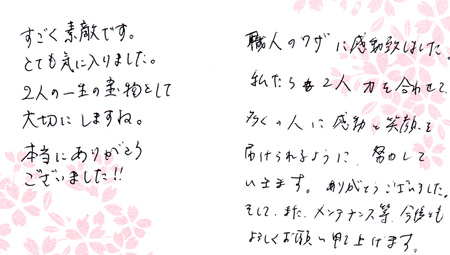 すごく素敵です。
とても気に入りました。
2人の一生の宝物として
大切にしますね。
本当にありがとう
ございました!!
職人のワザに感動致しました。
私たちも2人力を合わせて
多くの人に感動と笑顔を
届けられるように、努力して
いきます。ありがとうございました。
そして、また、メンテナンス等、今後とも
よろしくお願い申し上げます。